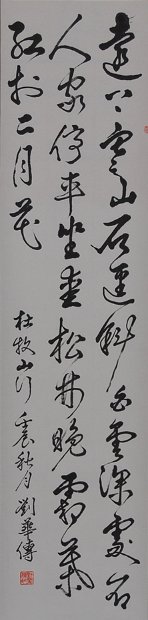 遠上寒山石徑斜白雲深處有
人家停車坐愛楓林晚霜葉
紅於二月花
杜牧山行 壬辰秋月 劉華傳